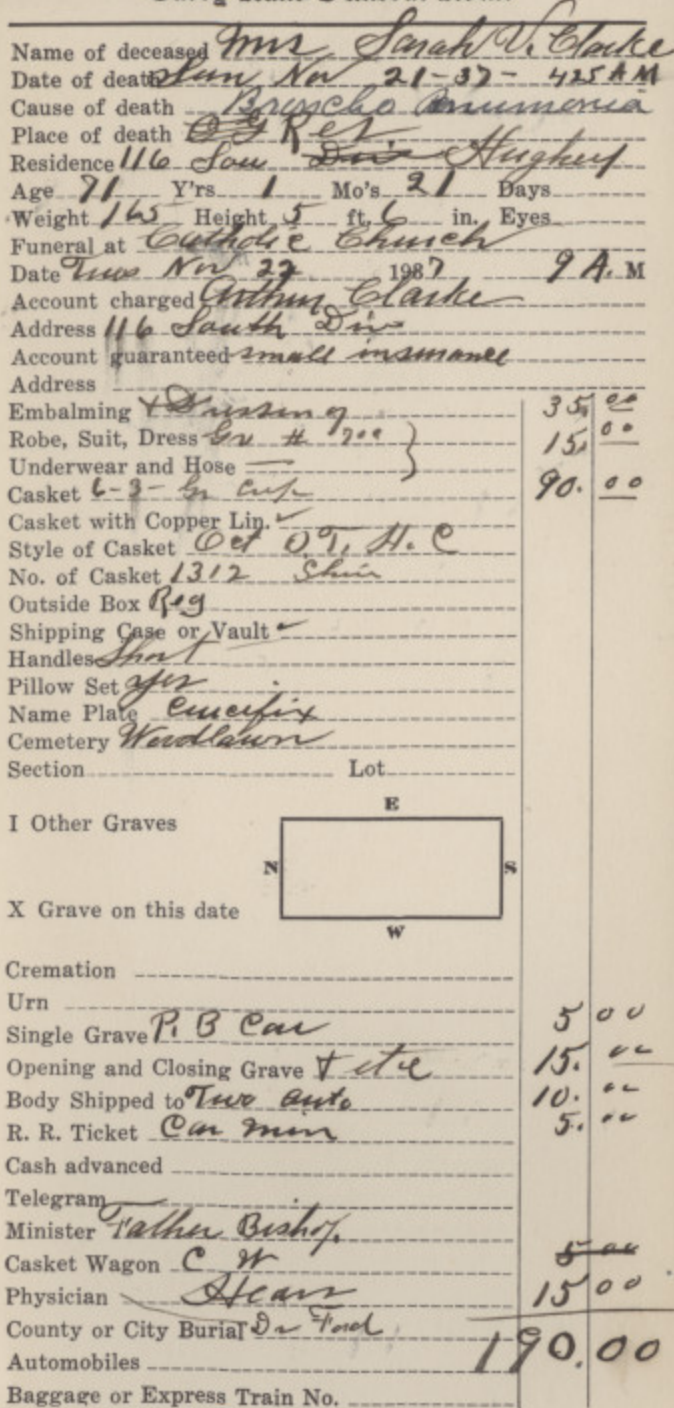 Name of deceased Mrs Sarah V. Clarke
Date of death Sun Nov 21-37- 425 AM
Cause of death Broncho Pnumonia
Place of death Res
Residence 116 Sou Div Hughey
Age 71 Y'rs 1 Mo's 21 Days
Weight 165 Height 5 ft. 6 in. Eyes
Funeral at Catholic Church
Date Tues Nov 23 1937 9 A. M
Account charged Arthur Clarke
Address 116 South Div
Account guaranteed small insurance
Address
Embalming & Dressing 35.00
Robe, Suit, Dress Gr # 700 15.00
Underwear and Hose —
Casket 6-3- Gr Crep 90.00
Casket with Copper Lin. ✓
Style of Casket Oct O.T. H.C
No. of Casket 1312
Outside Box Reg
Shipping Case or Vault ✓
Handles Short
Pillow Set yes
Name Plate Crucifix
Cemetery Woodlawn
Section Lot
E
I Other Graves
N S
X Grave on this date
W
Cremation
Urn
Single Grave P. B Car 5 00
Opening and Closing Grave & etc 15.00
Body Shipped to Two auto 10.00
R. R. Ticket Car Min 5.00
Cash advanced
Telegram
Minister Father Bishop.
Casket Wagon C W 5 00
Physician Hears 15 00
County or City Burial Dr Ford
190.00
Automobiles
Baggage or Express Train No.